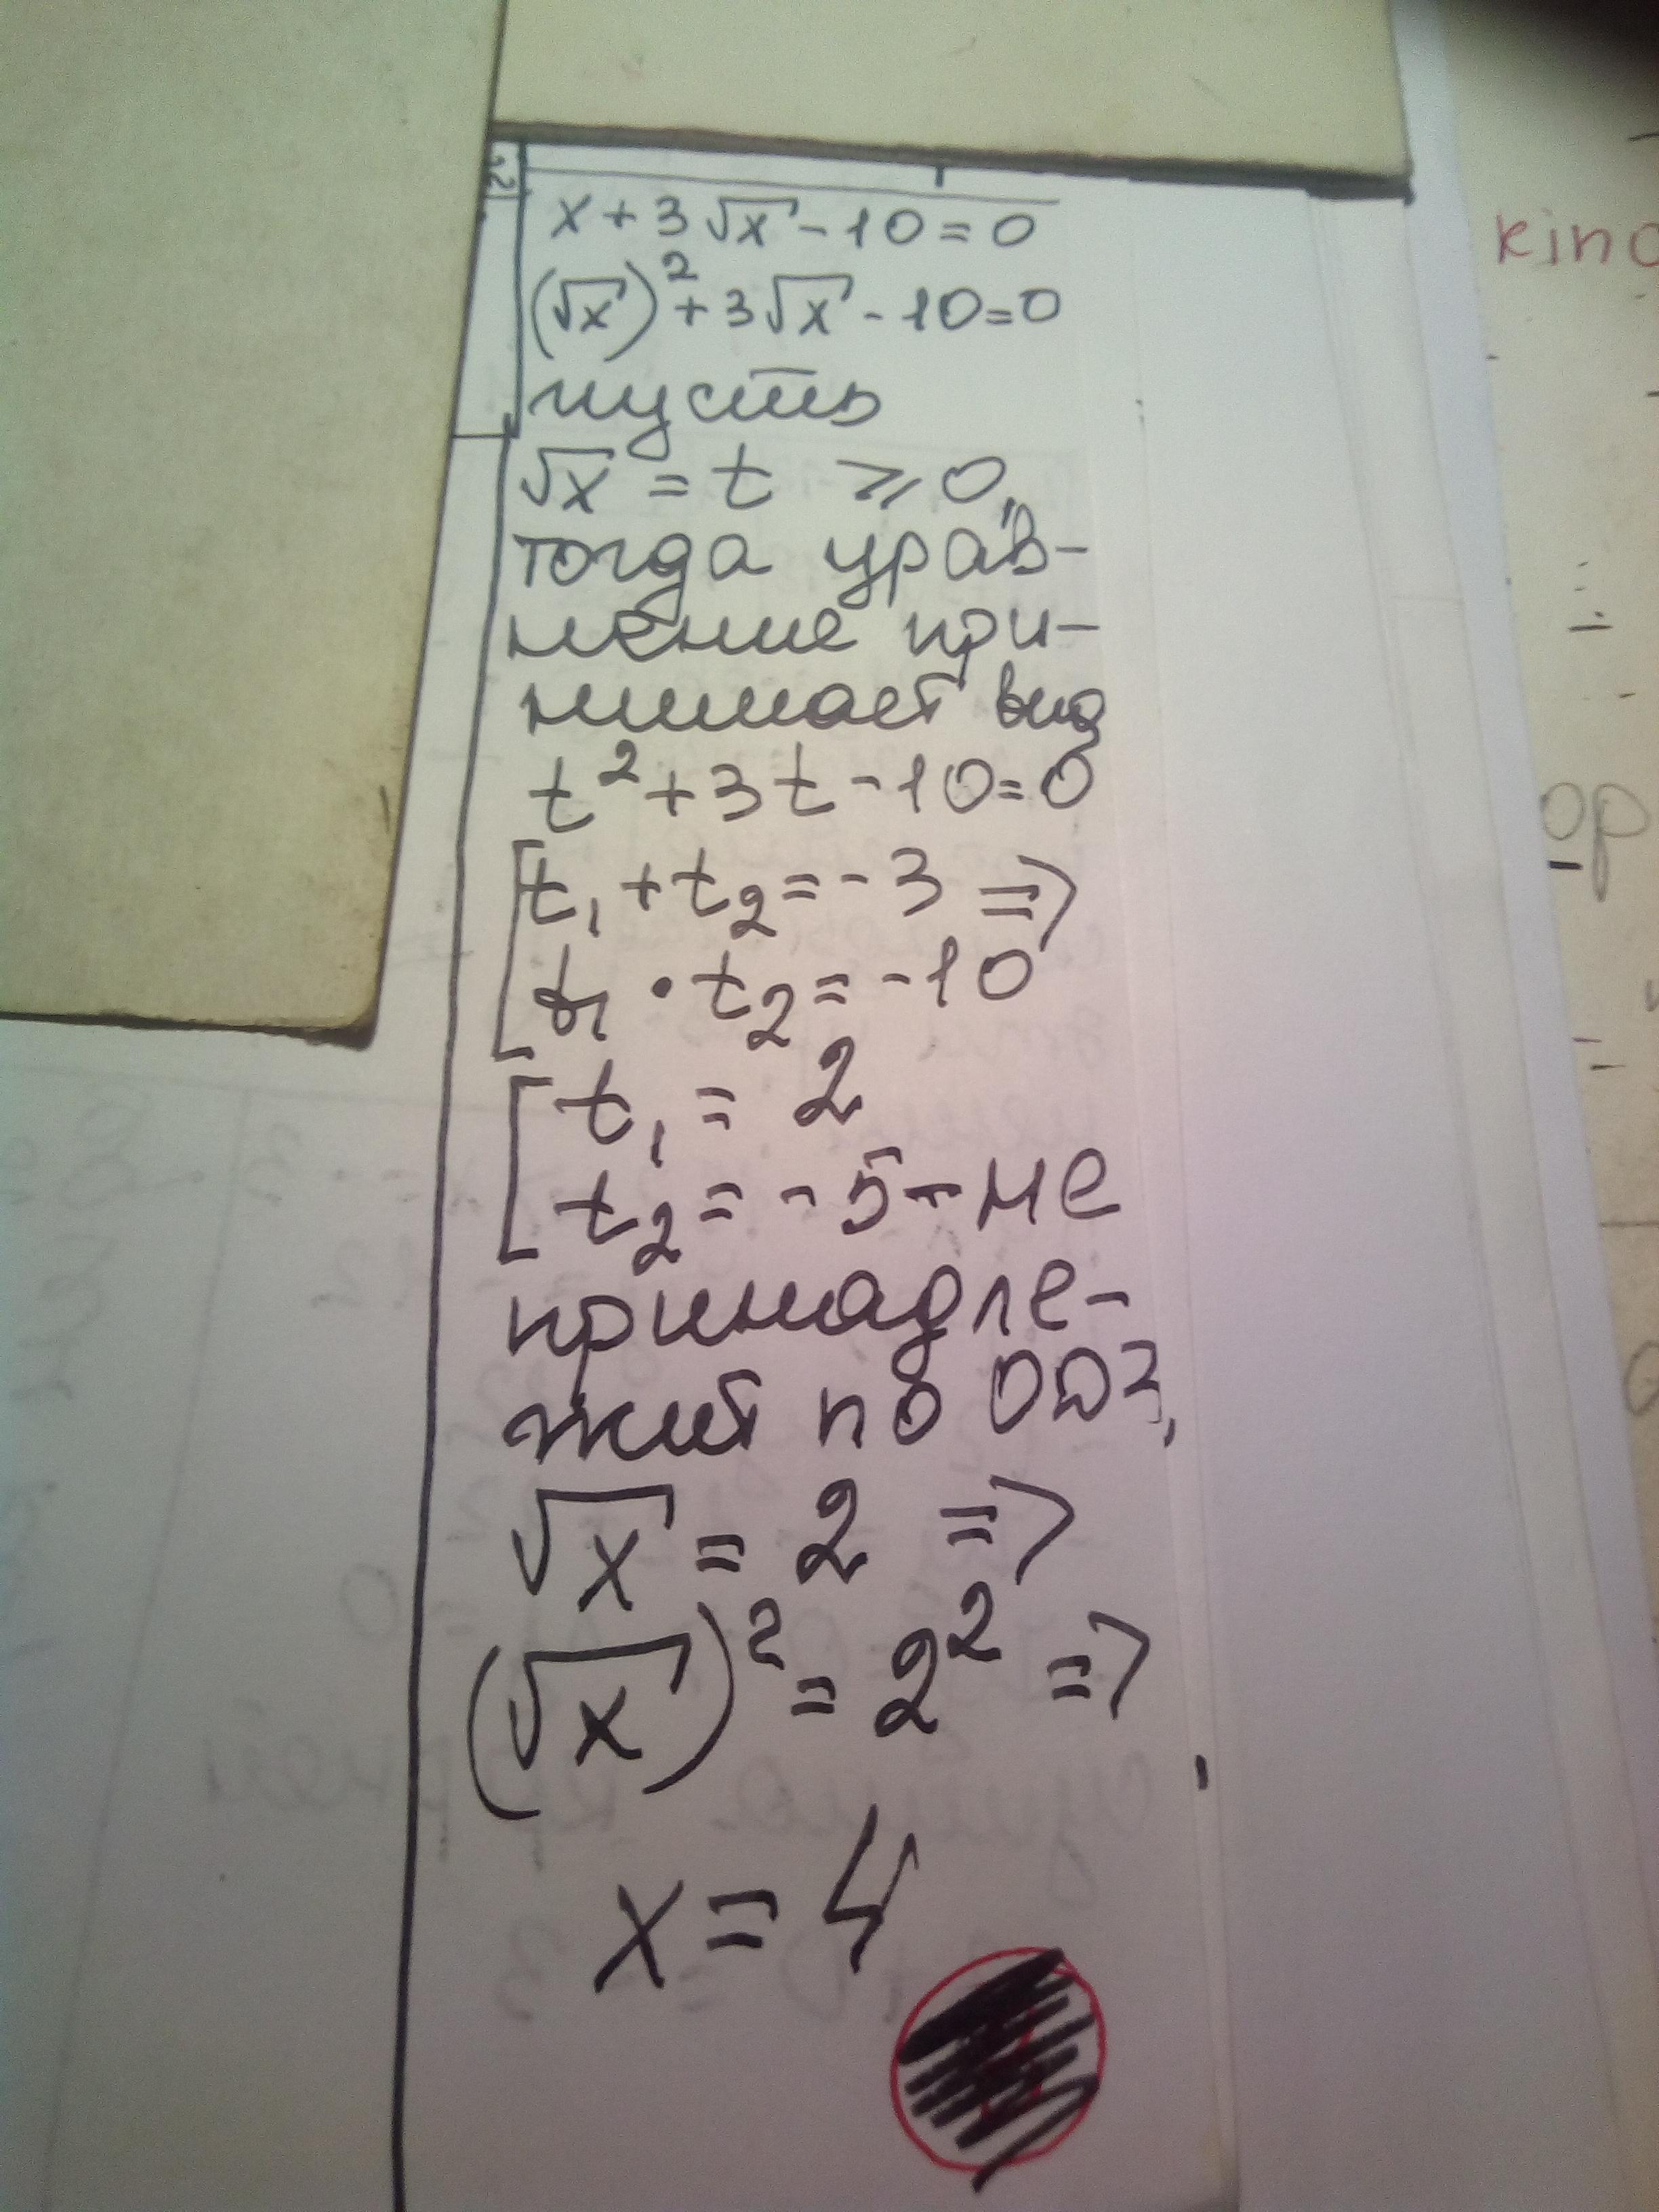 22
x + 3√x - 10 = 0
(√x)² + 3√x - 10 = 0
пусть
√x = t ⩾ 0,
тогда урав-
нение при-
нимает вид
t² + 3t - 10 = 0
[t₁ + t₂ = -3 =>
t₁ • t₂ = -10
[t₁ = 2
t₂ = -5 - не
принадле-
жит по ОДЗ,
√x = 2 =>
(√x)² = 2² =>
x = 4
kind
op